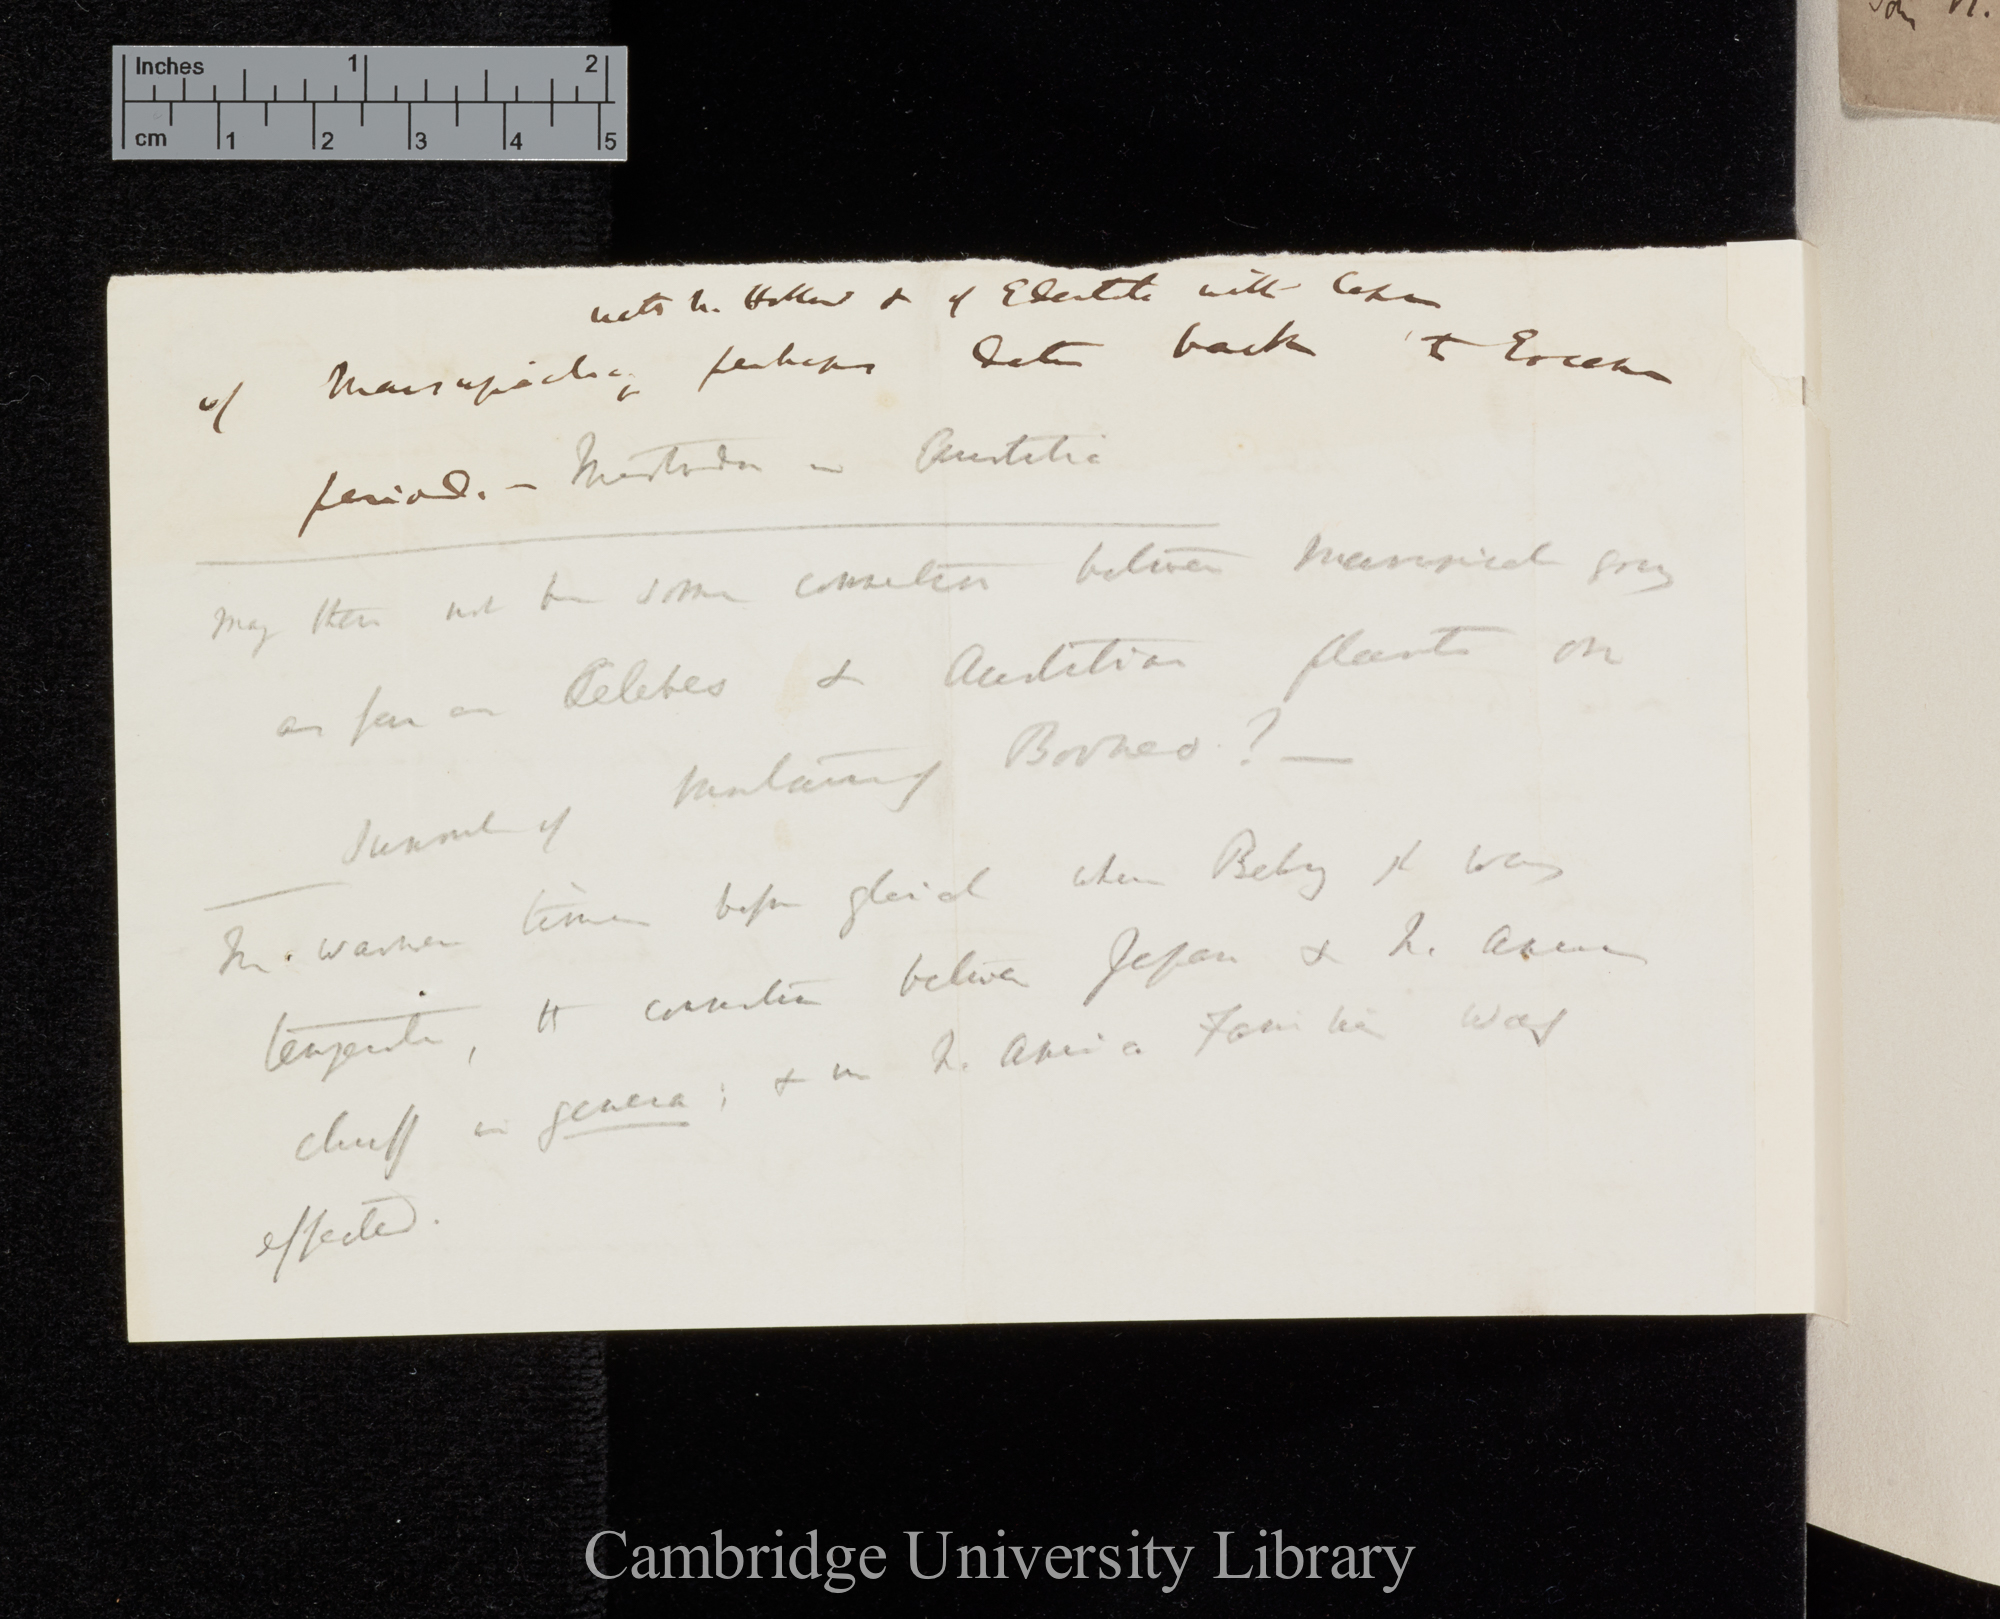 Inches 1 2
cm 1 2 3 4 5
with N. Holland & of Edentata with Cape
of Marsupials, perhaps dates back to Eocene
period. — Mastodon in Australia
May there not be some connection between Marsupials going
as far as Celebes & Australian plants on
summit of mountains of Borneo? —
In warmer times before glacial when Behg St was
temperate, the connection between Japan & N. America
chiefly in genera; & in S. America Families was
effected.
Cambridge University Library